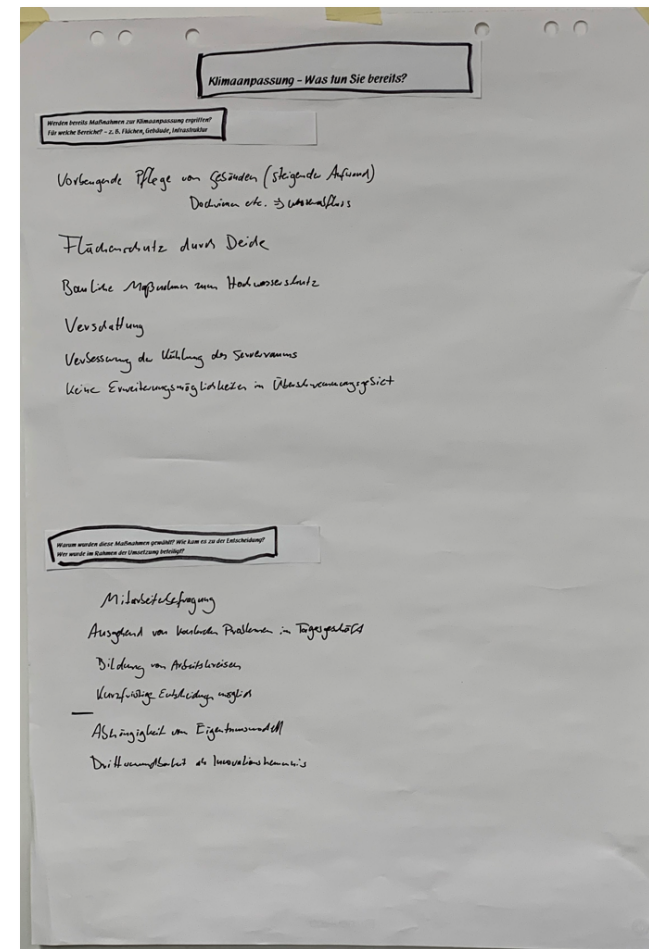 Klimaanpassung – Was tun Sie bereits?
Werden bereits Maßnahmen zur Klimaanpassung ergriffen?
Für welche Bereiche? – z. B. Flächen, Gebäude, Infrastruktur
Vorbeugende Pflege von Gebäuden (steigender Aufwand)
Dachrinnen etc. ⇒ Wasserabfluss
Flächenschutz durch Deiche
Bauliche Maßnahmen zum Hochwasserschutz
Verschattung
Verbesserung der Kühlung des Serverraums
Keine Erweiterungsmöglichkeiten im Überschwemmungsgebiet
Warum wurden diese Maßnahmen gewählt? Wie kam es zu der Entscheidung?
Wer wurde im Rahmen der Umsetzung beteiligt?
Mitarbeiterbefragung
Ausgehend von konkreten Problemen im Tagesgeschäft
Bildung von Arbeitskreisen
Kurzfristige Entscheidungen möglich
Abhängigkeit vom Eigentumsmodell
als Innovationshemmnis